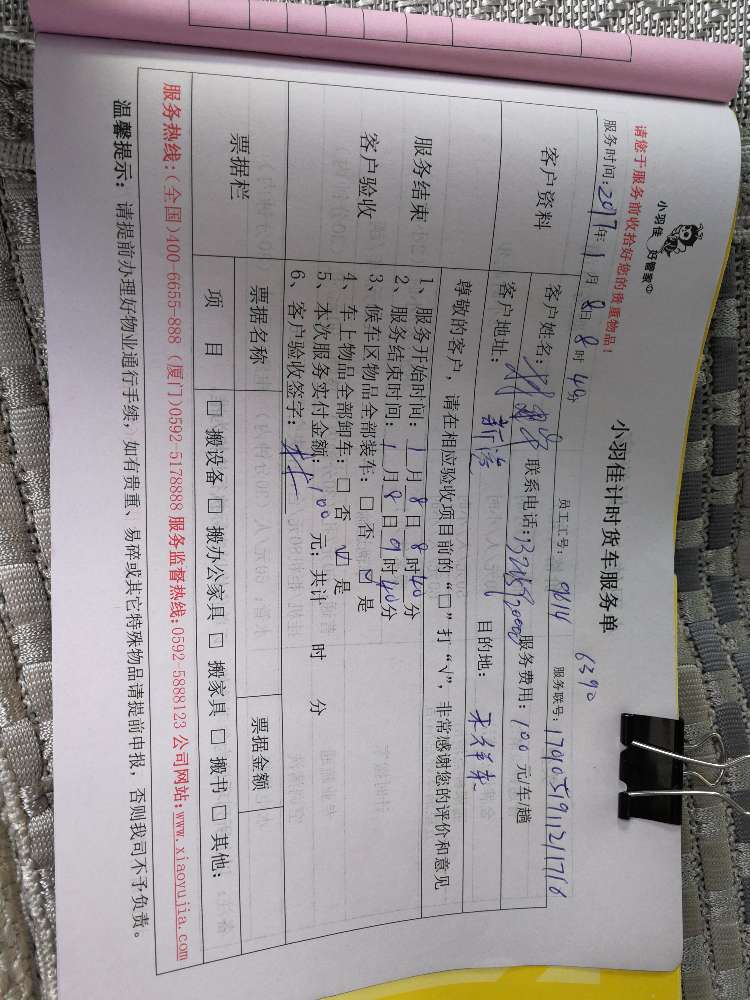 小羽佳 好管家
小羽佳计时货车服务单
6390
请您于服务前收拾好您的贵重物品！
服务时间：2017年 1月 8日 8时 40分 员工工号：9614 服务联号：
客户资料
客户姓名： 联系电话： 服务费用：100元/车/趟
客户地址： 目的地：
尊敬的客户，请在相应验收项目前的“□”打“√”，非常感谢您的评价和意见
服务结束
客户验收
1、服务开始时间：1月8日8时40分
2、服务结束时间：1月8日9时40分
3、候车区物品全部装车：□ 否 ☑ 是
4、车上物品全部卸车：□ 否 ☑ 是
5、本次服务实付金额：100元；共计 时 分
6、客户验收签字：林
票据栏
票据名称 票据金额
项 目 □ 搬设备 □ 搬办公家具 □ 搬家具 □ 搬书 □ 其他：
服务热线：(全国)400-6655-888 (厦门)0592-5178888 服务监督热线：0592-5888123 公司网站：www.xiaoyujia.com
温馨提示：请提前办理好物业通行手续，如有贵重、易碎或其它特殊物品请提前申报，否则我司不予负责。